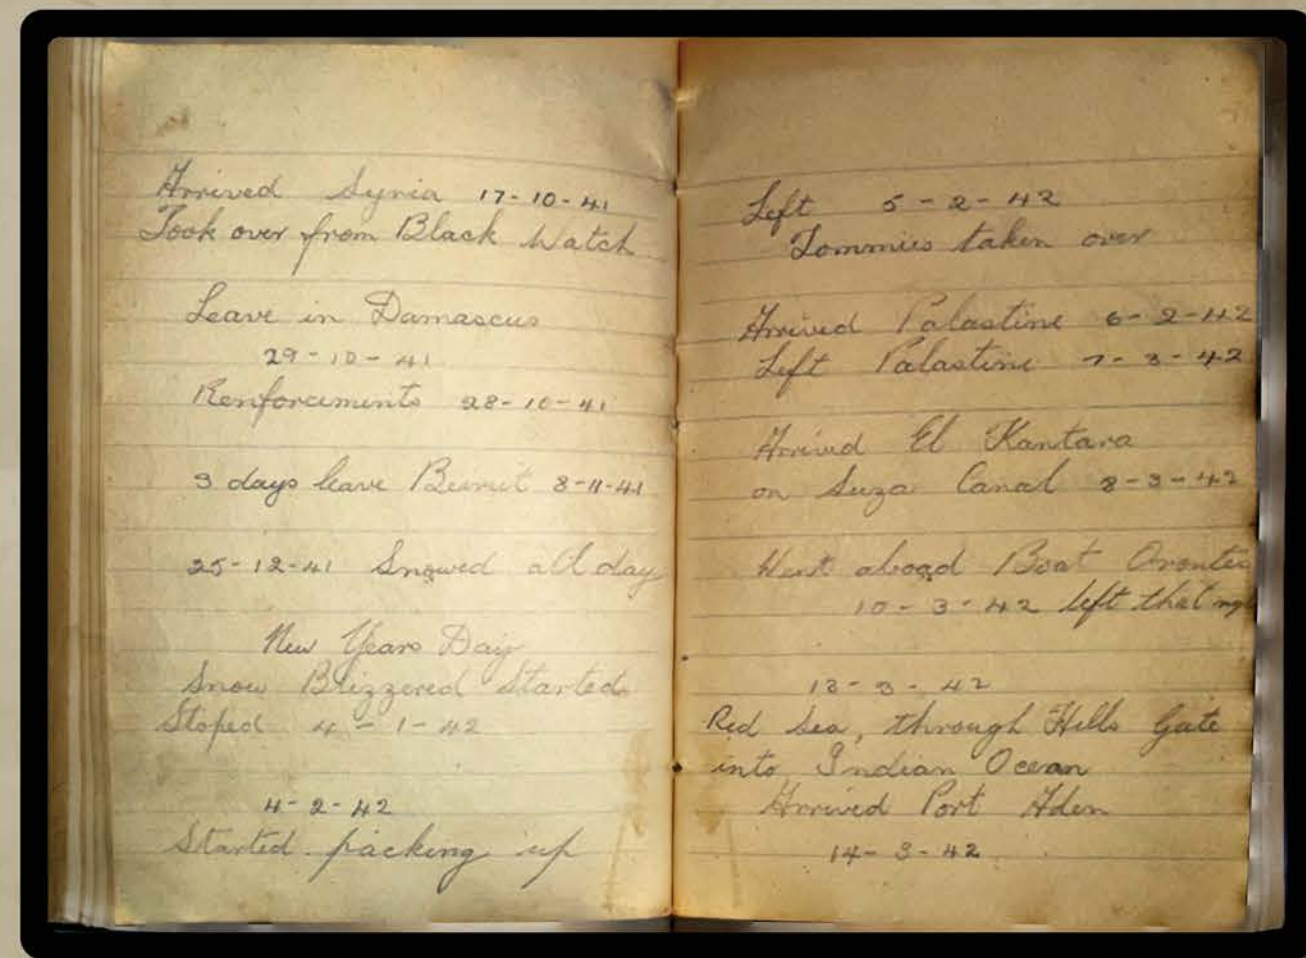 Arrived Syria 17-10-41
Took over from Black Watch
Leave in Damascus
29-10-41
Renforcements 28-10-41
3 days leave Beirut 8-11-41
25-12-41 Snowed all day
New Years Day
Snow Blizzered Started
Stoped 4-1-42
4-2-42
Started packing up
Left 5-2-42
Tommies taken over
Arrived Palastine 6-2-42
Left Palastine 7-3-42
Arrived El Kantara
on Suza Canal 8-3-42
Went aboad Boat Orontes
10-3-42 left that
13-3-42
Red Sea, through Hells Gate
into Indian Ocean
Arrived Port Aden
14-3-42